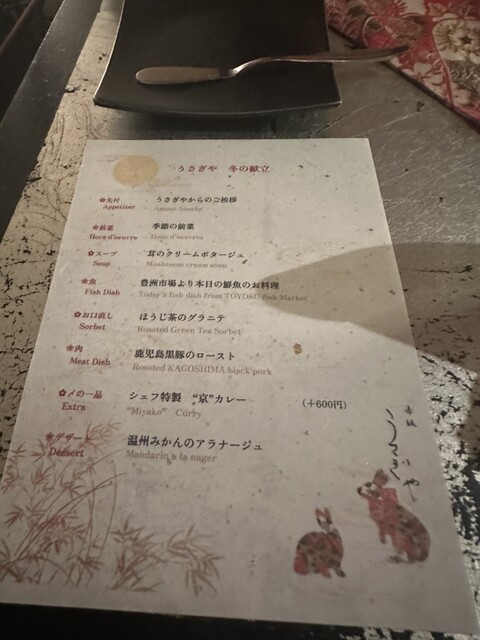 うさぎや 冬の献立
✿先付 うさぎやからのご挨拶
Appetizer Amuse-bouche
❀前菜 季節の前菜
Hors d'oeuvre Hors d'oeuvre
✿スープ 茸のクリームポタージュ
Soup Mushroom cream soup
❀魚 豊洲市場より本日の鮮魚のお料理
Fish Dish Today's fish dish from TOYOSU fish Market
✿お口直し ほうじ茶のグラニテ
Sorbet Roasted Green Tea Sorbet
❀肉 鹿児島黒豚のロースト
Meat Dish Roasted KAGOSHIMA black pork
✿〆の一品 シェフ特製 “京”カレー (+600円)
Extra “Miyako” Curry
❀デザート 温州みかんのアラナージュ
Dessert Mandarin a la nager